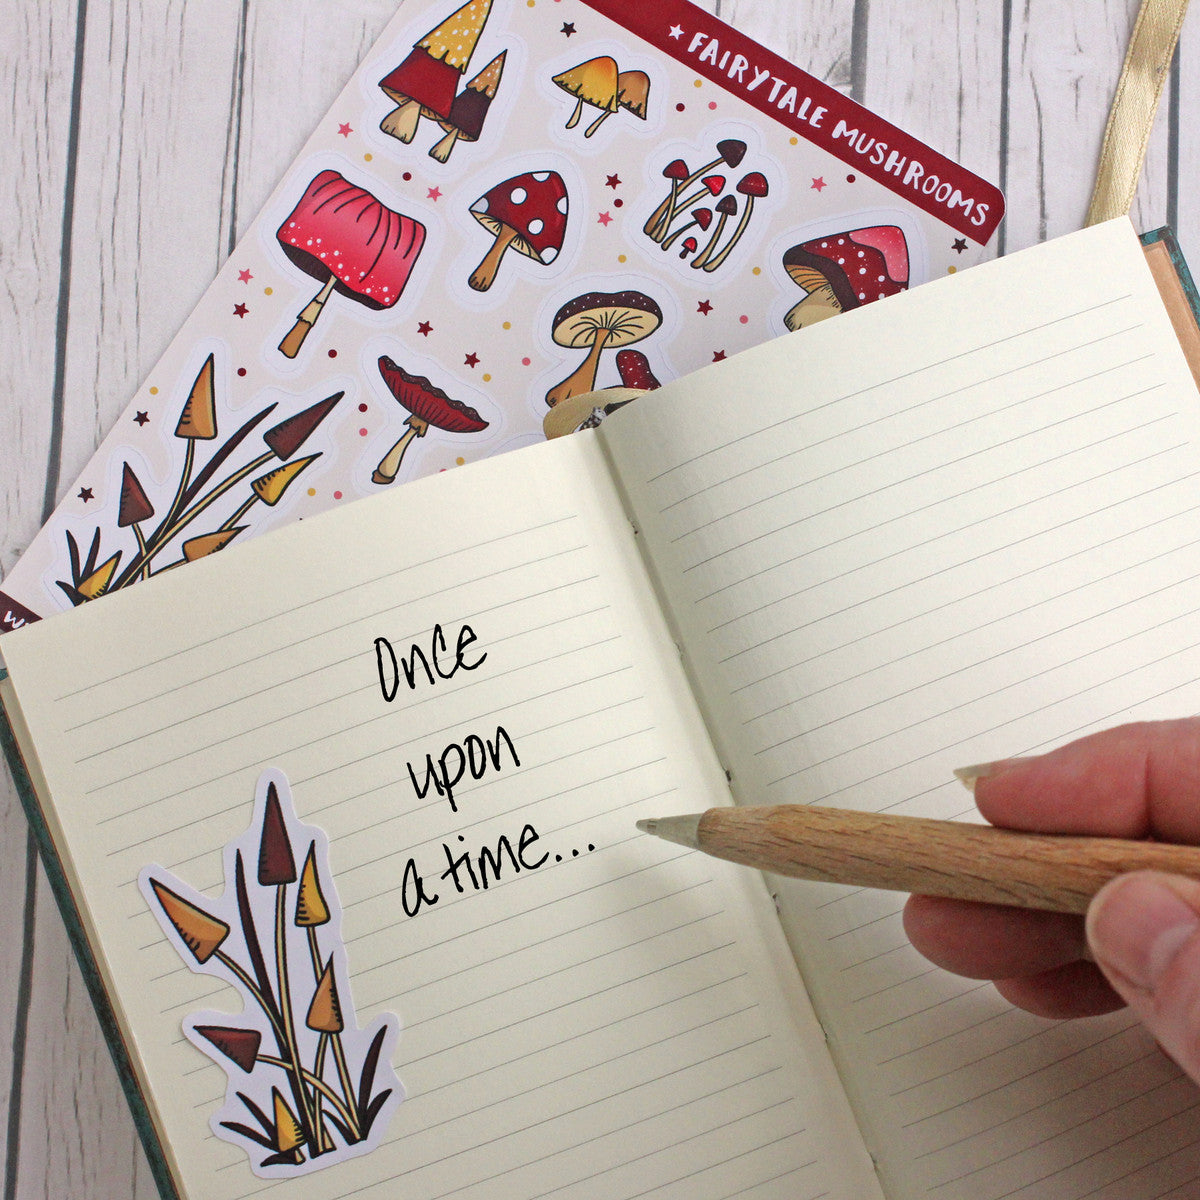 ★ FAIRYTALE MUSHROOMS
Once
upon
a time...